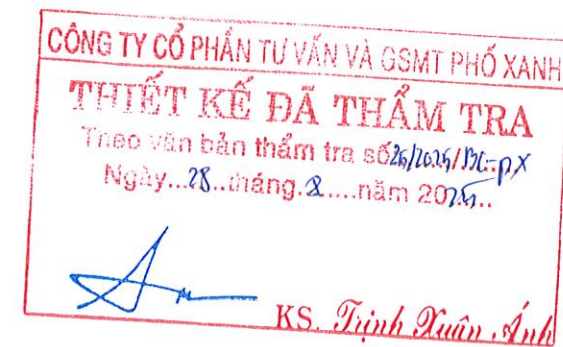 CÔNG TY CỔ PHẦN TƯ VẤN VÀ GSMT PHỐ XANH
THIẾT KẾ ĐÃ THẨM TRA
Theo văn bản thẩm tra số 26/2025/BC-PX
Ngày...28..tháng.2....năm 2025..
KS. Trịnh Xuân Ánh